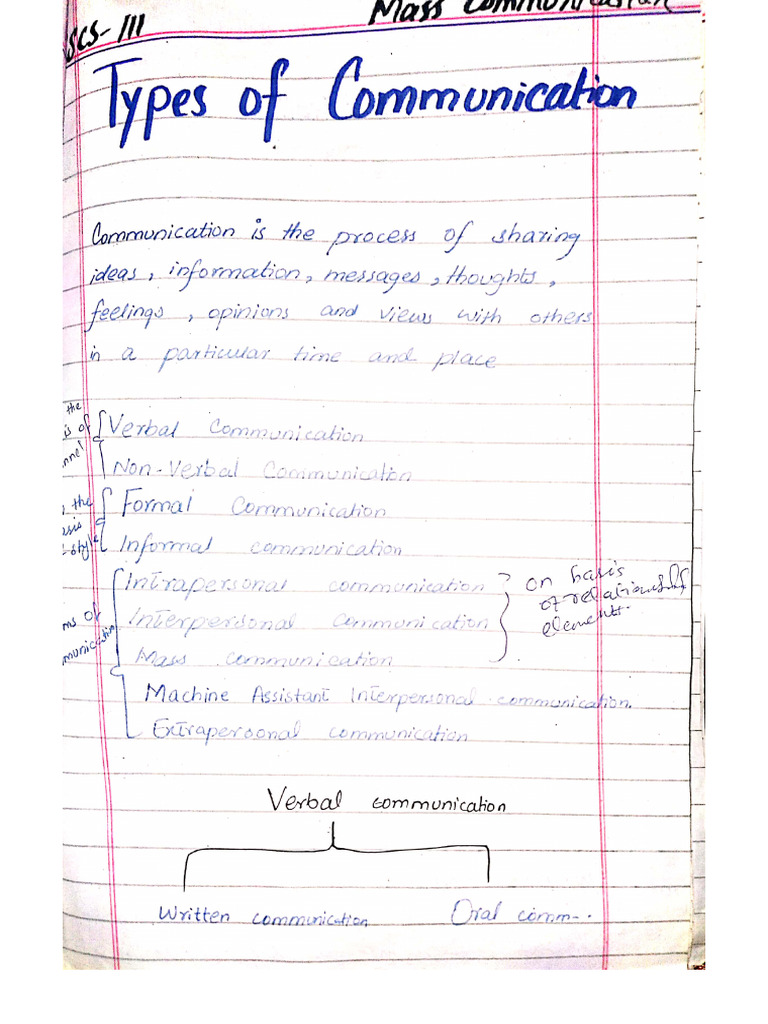 SCS-III
Mass Communication
Types of Communication
Communication is the process of sharing
ideas, information, messages, thoughts,
feelings, opinions and views with others
in a particular time and place
the
is of
nnel
Verbal Communication
Non-Verbal Communication
the
asis
style
Formal Communication
Informal communication
ms of
mmunication
Intrapersonal communication
Interpersonal communication
Mass communication
on basis
of
elements.
Machine Assistant Interpersonal communication.
Extrapersonal communication
Verbal communication
Written communication
Oral comm-..